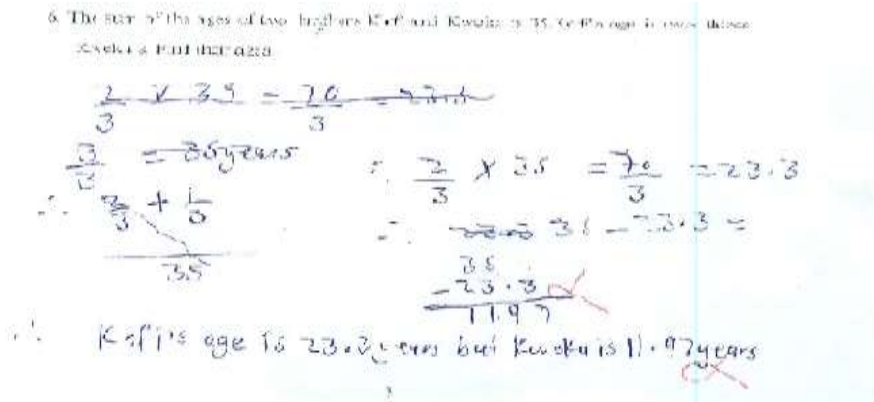 6. The sum of the ages of two brothers Kofi and Kweku is 35. Kofi's age is twice
Kweku's Find their ages
2/3 X 35 = 70/3 = 23.3
3/3 = 35years
∴ 2/3 + 1/3
35
∴ 2/3 X 35 = 70/3 = 23.3
∴ 35 - 23.3 =
35
- 23.3
11.97
∴ Kofi's age is 23.3years but Kweku is 11.97years